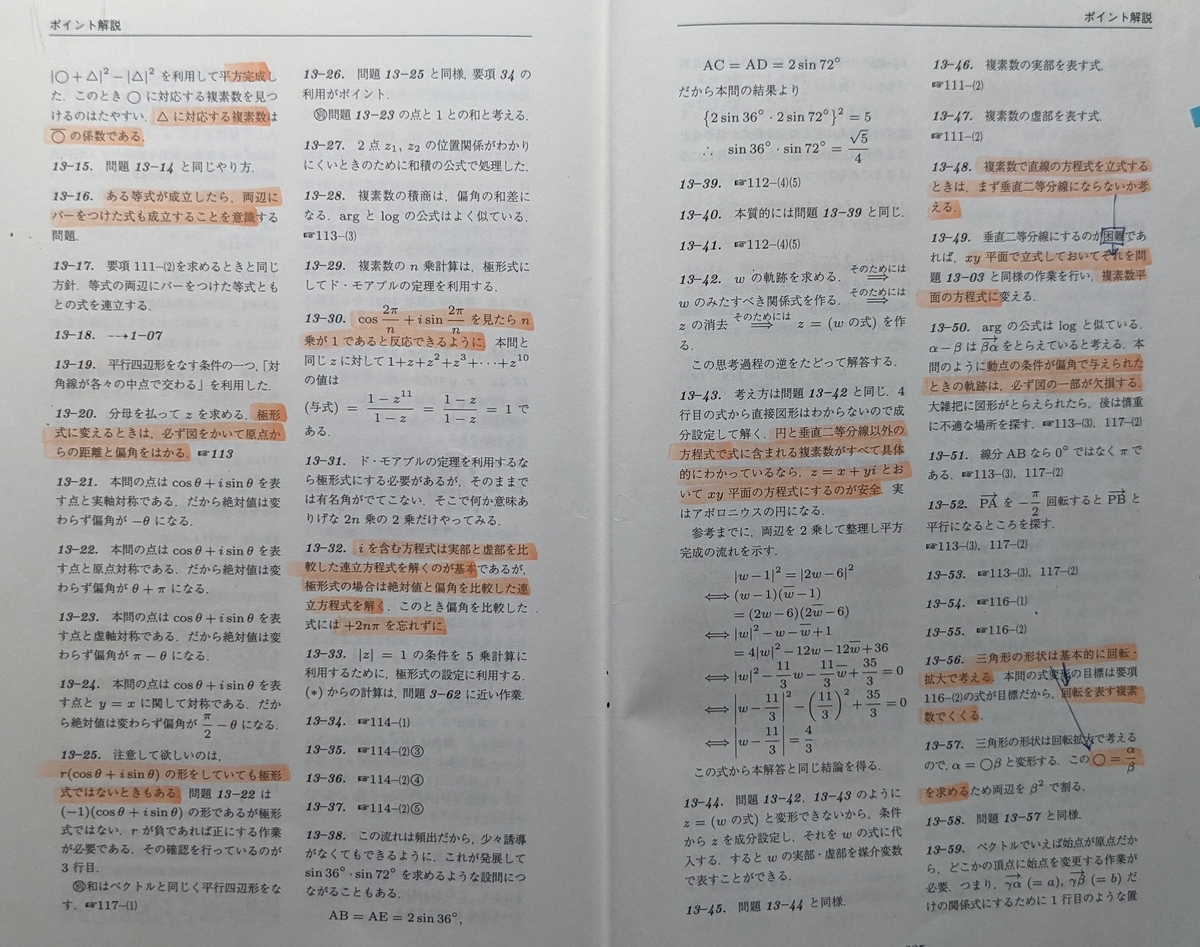 ポイント解説
|○+△|²−|△|² を利用して平方完成し
た. このとき ○ に対応する複素数を見つ
けるのはたやすい. △ に対応する複素数は
○̄ の係数である.
13-15. 問題 13-14 と同じやり方.
13-16. ある等式が成立したら, 両辺に
バーをつけた式も成立することを意識する
問題.
13-17. 要項 111-(2)を求めるときと同じ
方針. 等式の両辺にバーをつけた等式とも
との式を連立する.
13-18. --→1-07
13-19. 平行四辺形をなす条件の一つ,「対
角線が各々の中点で交わる」を利用した.
13-20. 分母を払って z を求める. 極形
式に変えるときは, 必ず図をかいて原点か
らの距離と偏角をはかる. ☞113
13-21. 本問の点は cosθ+i sinθ を表
す点と実軸対称である. だから絶対値は変
わらず偏角が −θ になる.
13-22. 本問の点は cosθ+i sinθ を表
す点と原点対称である. だから絶対値は変
わらず偏角が θ+π になる.
13-23. 本問の点は cosθ+i sinθ を表
す点と虚軸対称である. だから絶対値は変
わらず偏角が π−θ になる.
13-24. 本問の点は cosθ+i sinθ を表
す点と y=x に関して対称である. だか
ら絶対値は変わらず偏角が π/2−θ になる.
13-25. 注意して欲しいのは,
r(cosθ+i sinθ) の形をしていても極形
式ではないときもある. 問題 13-22 は
(−1)(cosθ+i sinθ) の形であるが極形
式ではない. r が負であれば正にする作業
が必要である. その確認を行っているのが
3 行目.
和はベクトルと同じく平行四辺形をな
す. ☞117-(1)
13-26. 問題 13-25 と同様, 要項 34 の
利用がポイント.
問題 13-23 の点と 1 との和と考える.
13-27. 2 点 z₁, z₂ の位置関係がわかり
にくいときのために和積の公式で処理した.
13-28. 複素数の積商は, 偏角の和差に
なる. arg と log の公式はよく似ている.
☞113-(3)
13-29. 複素数の n 乗計算は, 極形式に
してド・モアブルの定理を利用する.
13-30. cos 2π/n + i sin 2π/n を見たら n
乗が 1 であると反応できるように. 本問と
同じ z に対して 1+z+z²+z³+⋯+z¹⁰
の値は
(与式) = (1−z¹¹)/(1−z) = (1−z)/(1−z) = 1 で
ある.
13-31. ド・モアブルの定理を利用するな
ら極形式にする必要があるが, そのままで
は有名角がでてこない. そこで何か意味あ
りげな 2n 乗の 2 乗だけやってみる.
13-32. i を含む方程式は実部と虚部を比
較した連立方程式を解くのが基本であるが,
極形式の場合は絶対値と偏角を比較した連
立方程式を解く. このとき偏角を比較した
式には +2nπ を忘れずに.
13-33. |z| = 1 の条件を 5 乗計算に
利用するために, 極形式の設定に利用する.
(*) からの計算は, 問題 3-62 に近い作業.
13-34. ☞114-(1)
13-35. ☞114-(2)③
13-36. ☞114-(2)④
13-37. ☞114-(2)⑤
13-38. この流れは頻出だから, 少々誘導
がなくてもできるように. これが発展して
sin 36°·sin 72° を求めるような設問につ
ながることもある.
AB = AE = 2 sin 36°,
ポイント解説
AC = AD = 2 sin 72°
だから本問の結果より
{2 sin 36°·2 sin 72°}² = 5
∴ sin 36°·sin 72° = √5/4
13-39. ☞112-(4)(5)
13-40. 本質的には問題 13-39 と同じ.
13-41. ☞112-(4)(5)
13-42. w の軌跡を求める. そのためには⟹
w のみたすべき関係式を作る. そのためには⟹
z の消去 そのためには⟹ z = (w の式) を作
る.
この思考過程の逆をたどって解答する.
13-43. 考え方は問題 13-42 と同じ. 4
行目の式から直接図形はわからないので成
分設定して解く. 円と垂直二等分線以外の
方程式で式に含まれる複素数がすべて具体
的にわかっているなら, z = x+yi とお
いて xy 平面の方程式にするのが安全. 実
はアポロニウスの円になる.
参考までに, 両辺を 2 乗して整理し平方
完成の流れを示す.
|w−1|² = |2w−6|²
⟺ (w−1)(w̄−1)
= (2w−6)(2w̄−6)
⟺ |w|²−w−w̄+1
= 4|w|²−12w−12w̄+36
⟺ |w|²−11/3 w−11/3 w̄+35/3 = 0
⟺ |w−11/3|²−(11/3)²+35/3 = 0
⟺ |w−11/3| = 4/3
この式から本解答と同じ結論を得る.
13-44. 問題 13-42, 13-43 のように
z = (w の式) と変形できないから, 条件
から z を成分設定し, それを w の式に代
入する. すると w の実部・虚部を媒介変数
で表すことができる.
13-45. 問題 13-44 と同様.
13-46. 複素数の実部を表す式.
☞111-(2)
13-47. 複素数の虚部を表す式.
☞111-(2)
13-48. 複素数で直線の方程式を立式する
ときは, まず垂直二等分線にならないか考
える.
13-49. 垂直二等分線にするのが困難であ
れば, xy 平面で立式しておいてそれを問
題 13-03 と同様の作業を行い, 複素数平
面の方程式に変える.
13-50. arg の公式は log と似ている.
α−β は βα→ をとらえていると考える. 本
問のように動点の条件が偏角で与えられた
ときの軌跡は, 必ず図の一部が欠損する.
大雑把に図形がとらえられたら, 後は慎重
に不適な場所を探す. ☞113-(3), 117-(2)
13-51. 線分 AB なら 0° ではなく π で
ある. ☞113-(3), 117-(2)
13-52. PA→ を −π/2 回転すると PB→ と
平行になるところを探す.
☞113-(3), 117-(2)
13-53. ☞113-(3), 117-(2)
13-54. ☞116-(1)
13-55. ☞116-(2)
13-56. 三角形の形状は基本的に回転・
拡大で考える. 本問の式変形の目標は要項
116-(2)の式が目標だから, 回転を表す複素
数でくくる.
13-57. 三角形の形状は回転拡大で考える
ので, α = ○β と変形する. この ○ = α/β
を求めるため両辺を β² で割る.
13-58. 問題 13-57 と同様.
13-59. ベクトルでいえば始点が原点だか
ら, どこかの頂点に始点を変更する作業が
必要. つまり, γα→ (= a), γβ→ (= b) だ
けの関係式にするために 1 行目のような置